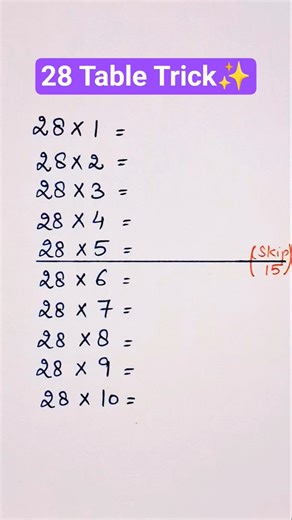 28 Table Trick✨
28 × 1 =
28 × 2 =
28 × 3 =
28 × 4 =
28 × 5 =
(Skip
15)
28 × 6 =
28 × 7 =
28 × 8 =
28 × 9 =
28 × 10 =